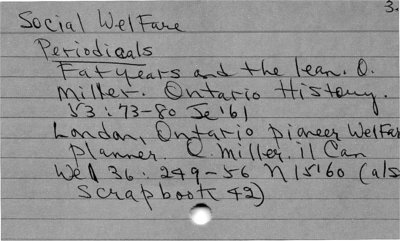 3.
Social Welfare
Periodicals
Fat years and the lean. O.
Miller. Ontario History.
53:73-80 Je '61
London, Ontario pioneer Welfar
planner. O. Miller. il Can
Wel 36: 249-56 N 15 '60 (als
scrapbook 42)